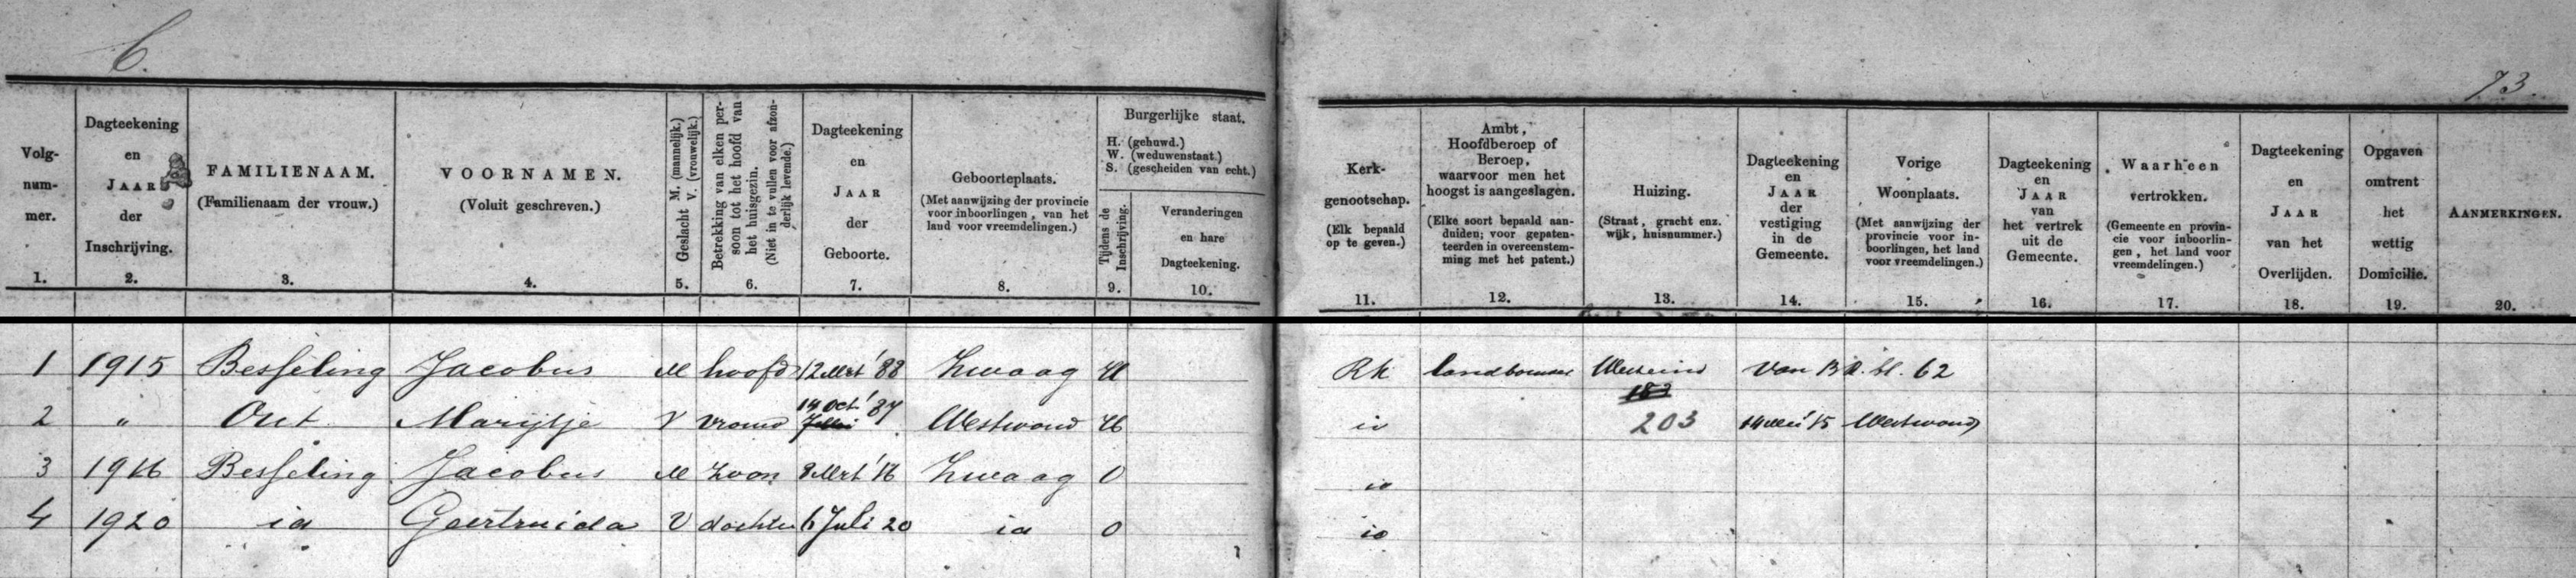 C.
73.
Volg-
num-
mer.
1.
Dagteekening
en
JAAR
der
Inschrijving.
2.
FAMILIENAAM.
(Familienaam der vrouw.)
3.
VOORNAMEN.
(Voluit geschreven.)
4.
Geslacht M. (mannelijk.)
V. (vrouwelijk.)
5.
Betrekking van elken per-
soon tot het hoofd van
het huisgezin.
(Niet in te vullen voor afzon-
derlijk levende.)
6.
Dagteekening
en
JAAR
der
Geboorte.
7.
Geboorteplaats.
(Met aanwijzing der provincie
voor inboorlingen, van het
land voor vreemdelingen.)
8.
Burgerlijke staat.
H. (gehuwd.)
W. (weduwenstaat.)
S. (gescheiden van echt.)
Tijdens de
Inschrijving.
9.
Veranderingen
en hare
Dagteekening.
10.
Kerk-
genootschap.
(Elk bepaald
op te geven.)
11.
Ambt,
Hoofdberoep of
Beroep,
waarvoor men het
hoogst is aangeslagen.
(Elke soort bepaald aan-
duiden; voor gepaten-
teerden in overeenstem-
ming met het patent.)
12.
Huizing.
(Straat, gracht enz.
wijk, huisnummer.)
13.
Dagteekening
en
JAAR
der
vestiging
in de
Gemeente.
14.
Vorige
Woonplaats.
(Met aanwijzing der
provincie voor in-
boorlingen, het land
voor vreemdelingen.)
15.
Dagteekening
en
JAAR
van
het vertrek
uit de
Gemeente.
16.
Waarheen
vertrokken.
(Gemeente en provin-
cie voor inboorlin-
gen, het land voor
vreemdelingen.)
17.
Dagteekening
en
JAAR
van het
Overlijden.
18.
Opgaven
omtrent
het
wettig
Domicilie.
19.
AANMERKINGEN.
20.
1 1915 Besseling Jacobus M hoofd 12 Mrt '88 Zwaag H Rk landbouwer Westeind Van B.R. bl. 62
183
2 " Out Marijtje V vrouw 14 Oct. '87 Westwoud H id 203 14 Mei '15 Westwoud
3 1916 Besseling Jacobus M zoon 8 Mrt '16 Zwaag O id
4 1920 id Geertruida V dochter 6 Juli 20 id O id